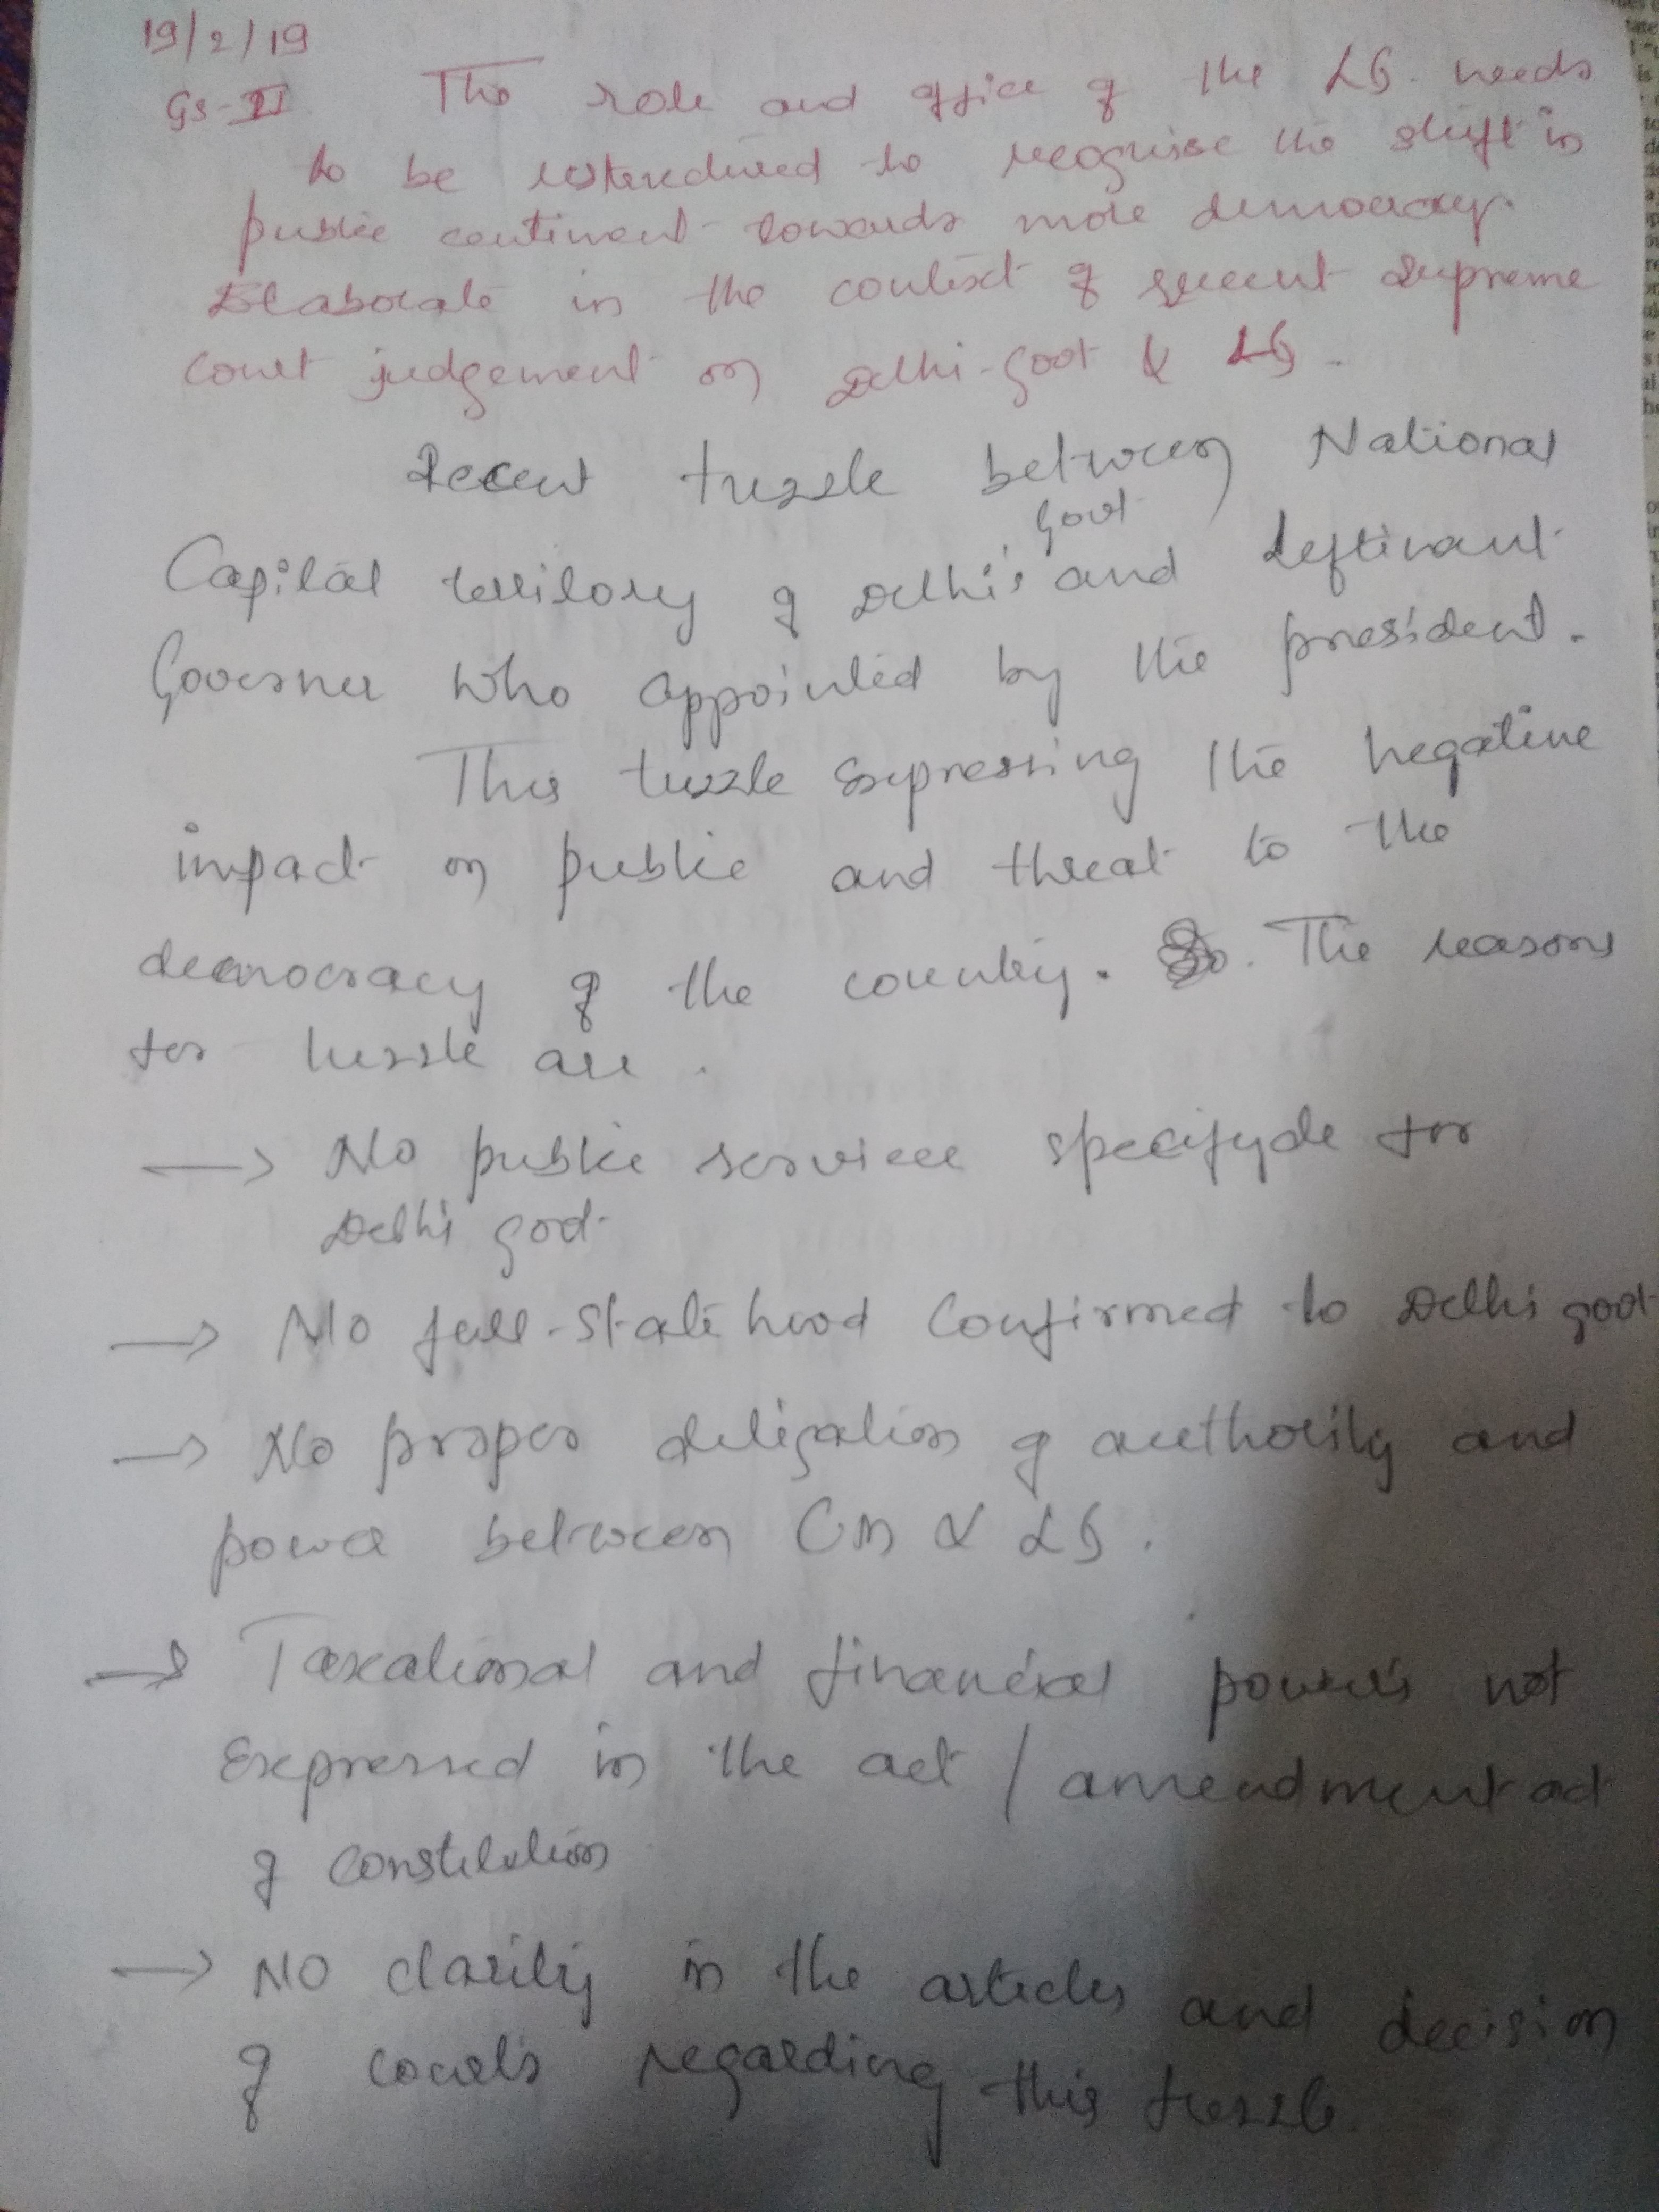 19/2/19
GS-II The role and office of the LG. needs
to be restructured to recognise the shift in
public continent towards more democracy.
Elaborate in the context of recent Supreme
Court judgement on Delhi-Govt & LG.
Recent tussle between National
Govt
Capital territory of Delhi's and Leftinant
Governer who appointed by the president.
This tussle expressing the negative
impact on public and threat to the
democracy of the country. The reasons
for tussle are.
→ No public service specifyde for
Delhi govt
→ No full-statehood Confirmed to Delhi govt
→ No proper deligation of authority and
power between CM & LG.
→ Taxational and financial powers not
Expressed in the act / amendment act
of constitution
→ NO clarity in the articles and decision
of courts regarding this tussle.